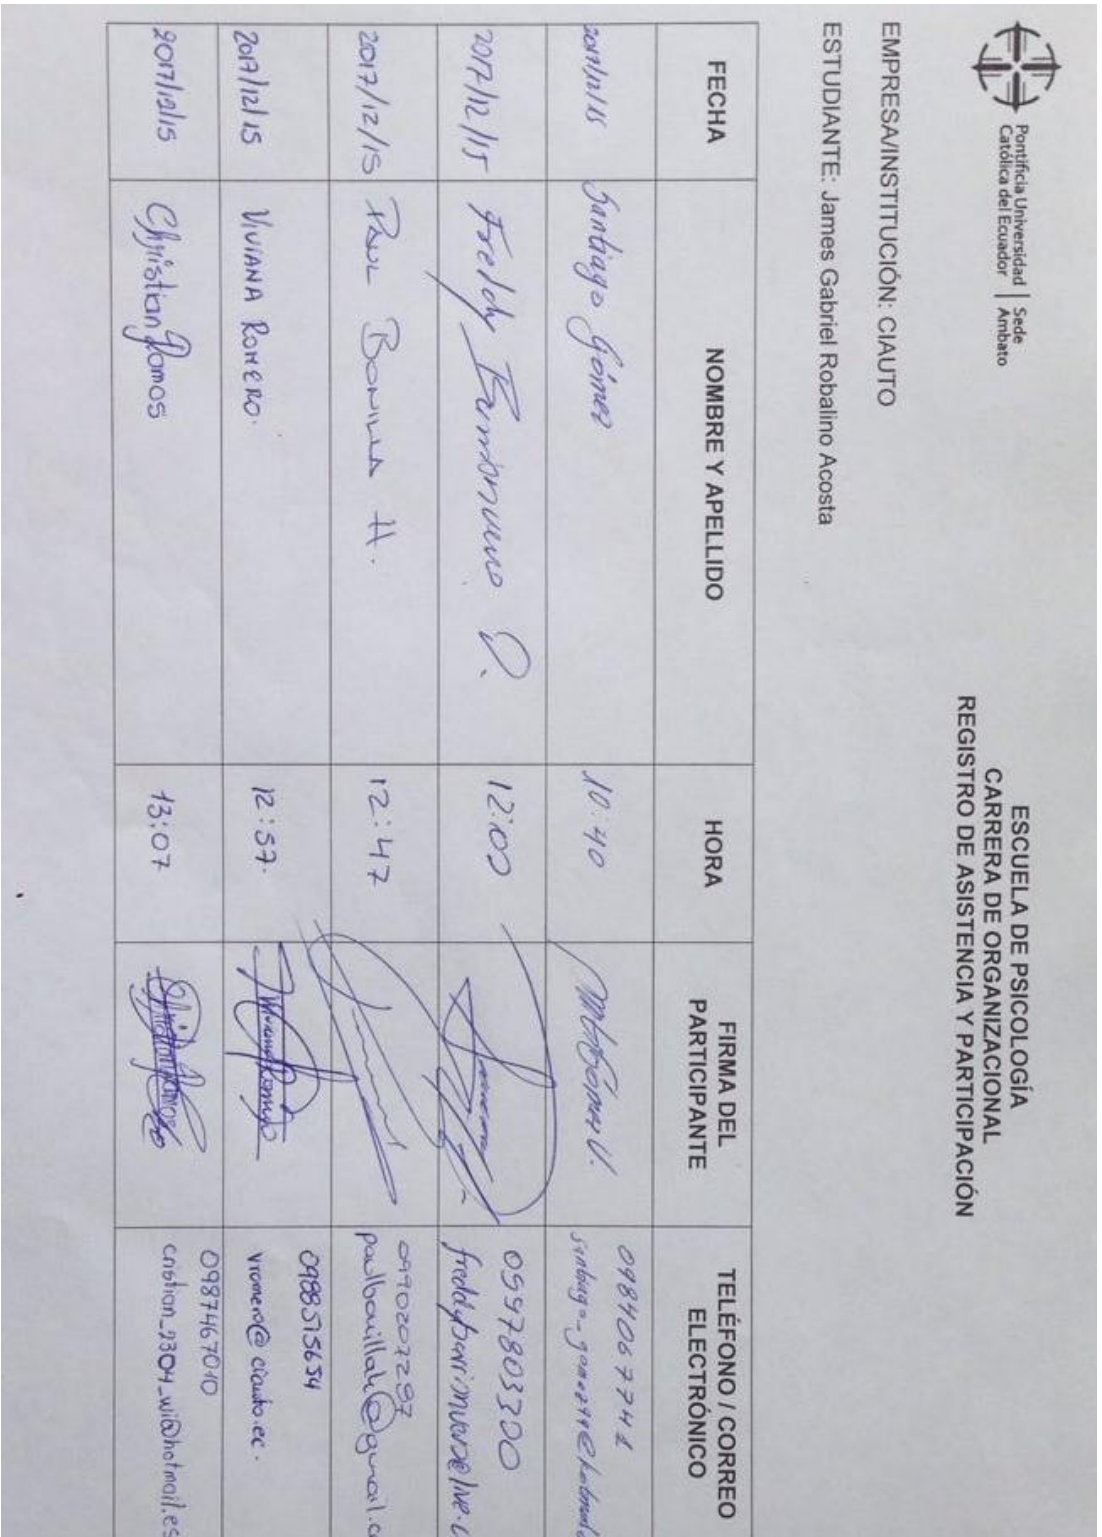 Pontificia Universidad Sede
Católica del Ecuador Ambato
ESCUELA DE PSICOLOGÍA
CARRERA DE ORGANIZACIONAL
REGISTRO DE ASISTENCIA Y PARTICIPACIÓN
EMPRESA/INSTITUCIÓN: CIAUTO
ESTUDIANTE: James Gabriel Robalino Acosta
FECHA NOMBRE Y APELLIDO HORA FIRMA DEL PARTICIPANTE TELÉFONO / CORREO ELECTRÓNICO
2017/12/15 Santiago Gómez 10:40 0984067741
2017/12/15 Freddy 12:00
2017/12/15 PAUL BONILLA H. 12:47 0990207297
paulbonillah@gmail.c
2017/12/15 VIVIANA ROMERO. 12:57. 0988515654
vromero@ciauto.ec.
2017/12/15 Christian Ramos 13:07 0987467010
cristian_2304_wi@hotmail.es